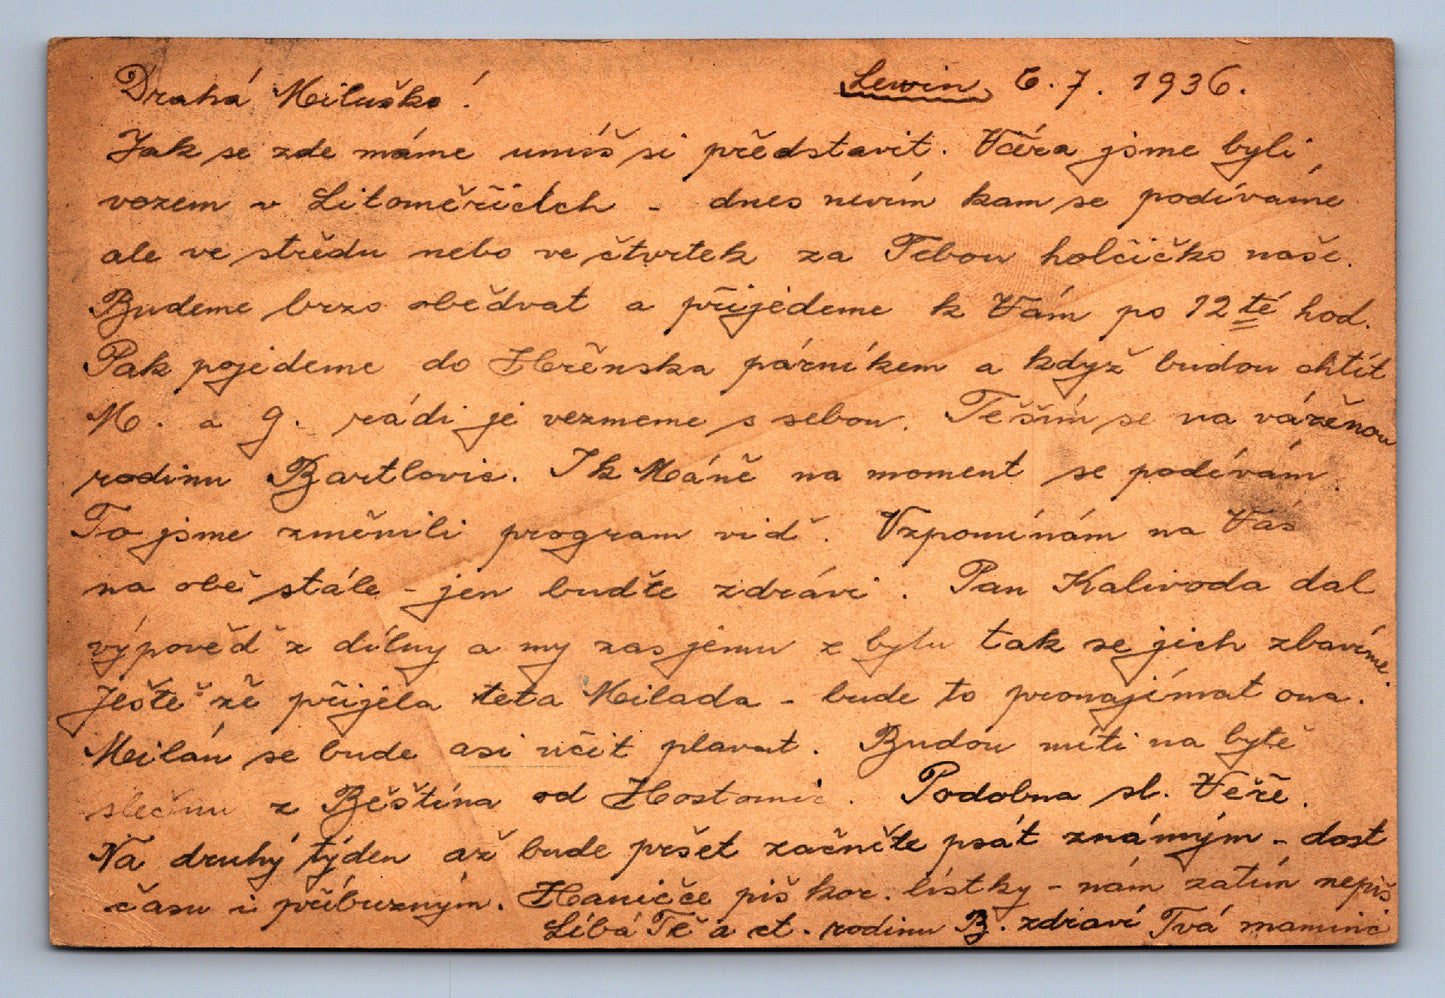 Drahá Miluško! Lewin 6.7. 1936.
Jak se zde máme umíš si představit. Včera jsme byli
vozem v Litoměřicích - dnes nevím kam se podíváme
ale ve středu nebo ve čtvrtek za Tebou holčičko naše.
Budeme brzo obědvat a přijedeme k Vám po 12té hod.
Pak pojedeme do Hřenska párníkem a když budou chtít
M. a J. rádi je vezmeme s sebou. Těším se na váženou
rodinu Bartlovic. I k Máně na moment se podívám.
To jsme změnili program viď. Vzpomínám na Vás
na obě stále - jen buďte zdrávi. Pan Kalivoda dal
výpověď z dílny a my zas jemu z bytu tak se jich zbavíme.
Ještě že přijela teta Milada - bude to pronajímat ona.
Milán se bude asi učit plavat. Budou míti na bytě
slečnu z Běštína od Hostomic. Podobna sl. Věře.
Na druhý týden až bude pršet začněte psát známým - dost
času i příbuzným. Haničce piš kor. lístky - nám zatím nepiš
Líbá Tě a ct. rodinu B. zdraví Tvá maminc